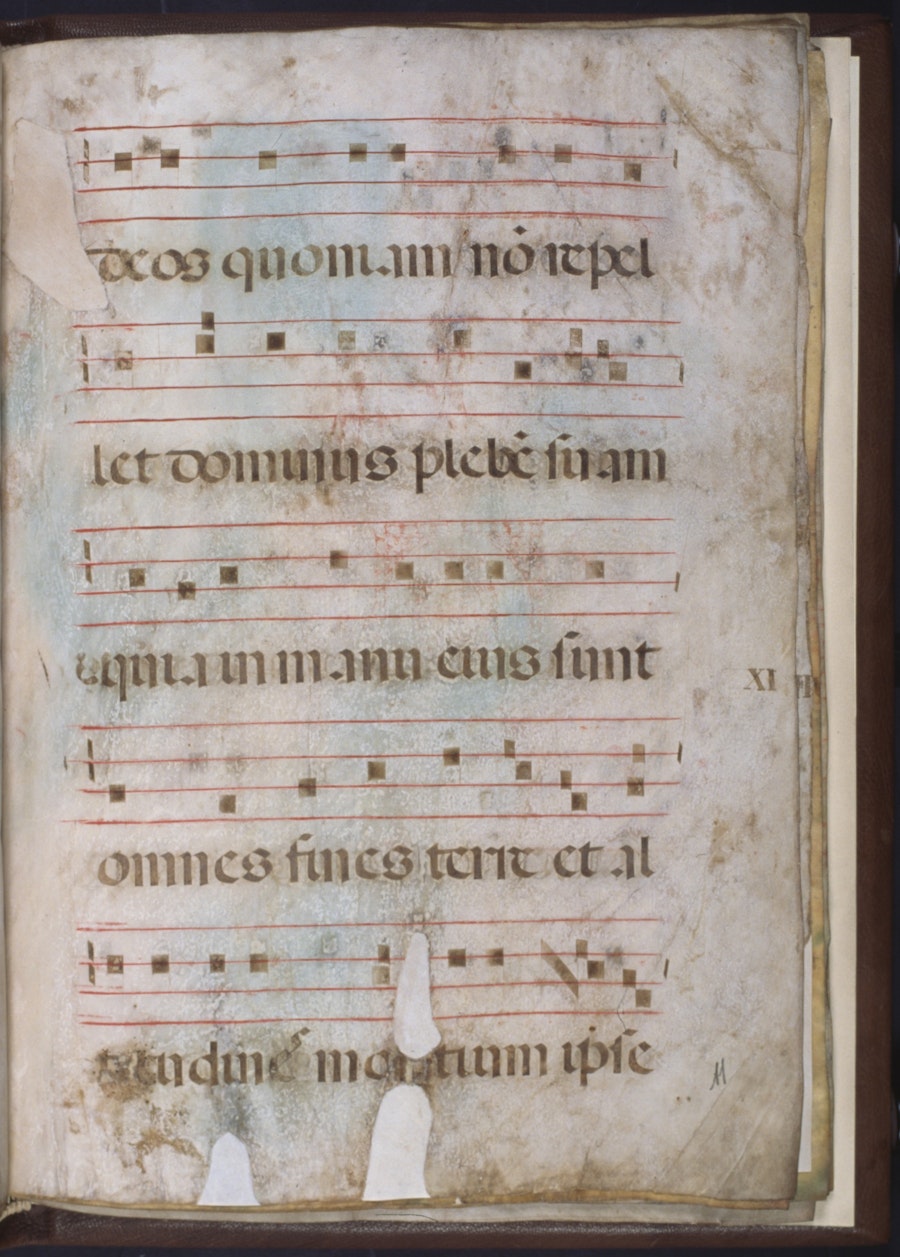 deos quoniam nō repel
let dominus plebē suam
quia in manu eius sunt
XI
omnes fines terre et al
montium ipse
M